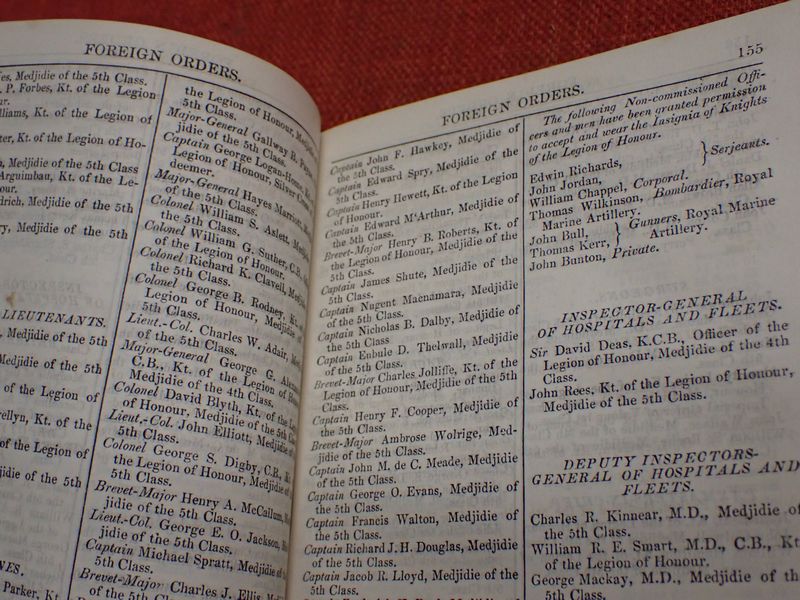 FOREIGN ORDERS.
Medjidie of the 5th Class.
P. Forbes, Kt. of the Legion
Kt. of the Legion of
Kt. of the Legion of Ho-
Medjidie of the 5th Class
Arguimbau, Kt. of the Le-
Medjidie of the 5th
Medjidie of the 5th
LIEUTENANTS.
Medjidie of the 5th
Medjidie of the 5th
of the Legion of
Kt. of the
of the Legion of
of the 5th
Parker, Kt.
the Legion of Honour,
5th Class.
Major-General Gallway B.
jidie of the 5th Class.
Captain George Logan
Legion of Honour, Silver
deemer.
Major-General Hayes Marriott,
of the 5th Class.
Colonel William S. Aslett,
the 5th Class.
Colonel William G. Suther, C.B.,
of the Legion of Honour.
Colonel Richard K. Clavell,
of the 5th Class.
Colonel George B. Rodney, Kt. of
Legion of Honour, Medjidie of
5th Class.
Lieut.-Col. Charles W. Adair,
of the 5th Class.
Major-General George G.
C.B., Kt. of the Legion of
Medjidie of the 4th Class.
Colonel David Blyth, Kt. of the
of Honour, Medjidie of the 5th
Lieut.-Col. John Elliott, Medjidie of
5th Class.
Colonel George S. Digby, C.B., Kt.
the Legion of Honour, Medjidie of
5th Class.
Brevet-Major Henry A. McCallum,
jidie of the 5th Class.
Lieut.-Col. George E. O. Jackson,
jidie of the 5th Class.
Captain Michael Spratt, Medjidie of
5th Class.
Brevet-Major Charles J. Ellis,
of the 5th Class.
FOREIGN ORDERS.
155
Captain John F. Hawkey, Medjidie of
the 5th Class.
Captain Edward Spry, Medjidie of the
5th Class.
Captain Henry Hewett, Kt. of the Legion
of Honour.
Captain Edward M'Arthur, Medjidie of
the 5th Class.
Brevet-Major Henry B. Roberts, Kt. of
the Legion of Honour, Medjidie of the
5th Class.
Captain James Shute, Medjidie of the
5th Class.
Captain Nugent Macnamara, Medjidie
of the 5th Class.
Captain Nicholas B. Dalby, Medjidie of
the 5th Class.
Captain Eubule D. Thelwall, Medjidie
of the 5th Class.
Brevet-Major Charles Jolliffe, Kt. of the
Legion of Honour, Medjidie of the 5th
Class.
Captain Henry F. Cooper, Medjidie of
the 5th Class.
Brevet-Major Ambrose Wolrige, Med-
jidie of the 5th Class.
Captain John M. de C. Meade, Medjidie
of the 5th Class.
Captain George O. Evans, Medjidie of
the 5th Class.
Captain Francis Walton, Medjidie of
the 5th Class.
Captain Richard J. H. Douglas, Medjidie
of the 5th Class.
Captain Jacob R. Lloyd, Medjidie of the
5th Class.
The following Non-commissioned Offi-
cers and men have been granted permission
to accept and wear the Insignia of Knights
of the Legion of Honour.
Edwin Richards, } Serjeants.
John Jordan,
William Chappel, Corporal.
Thomas Wilkinson, Bombardier, Royal
Marine Artillery.
John Bull, } Gunners, Royal Marine
Thomas Kerr, } Artillery.
John Bunton, Private.
INSPECTOR-GENERAL
OF HOSPITALS AND FLEETS.
Sir David Deas, K.C.B., Officer of the
Legion of Honour, Medjidie of the 4th
Class.
John Rees, Kt. of the Legion of Honour,
Medjidie of the 5th Class.
DEPUTY INSPECTORS-
GENERAL OF HOSPITALS AND
FLEETS.
Charles R. Kinnear, M.D., Medjidie of
the 5th Class.
William R. E. Smart, M.D., C.B., Kt.
of the Legion of Honour.
George Mackay, M.D., Medjidie of the
5th Class.